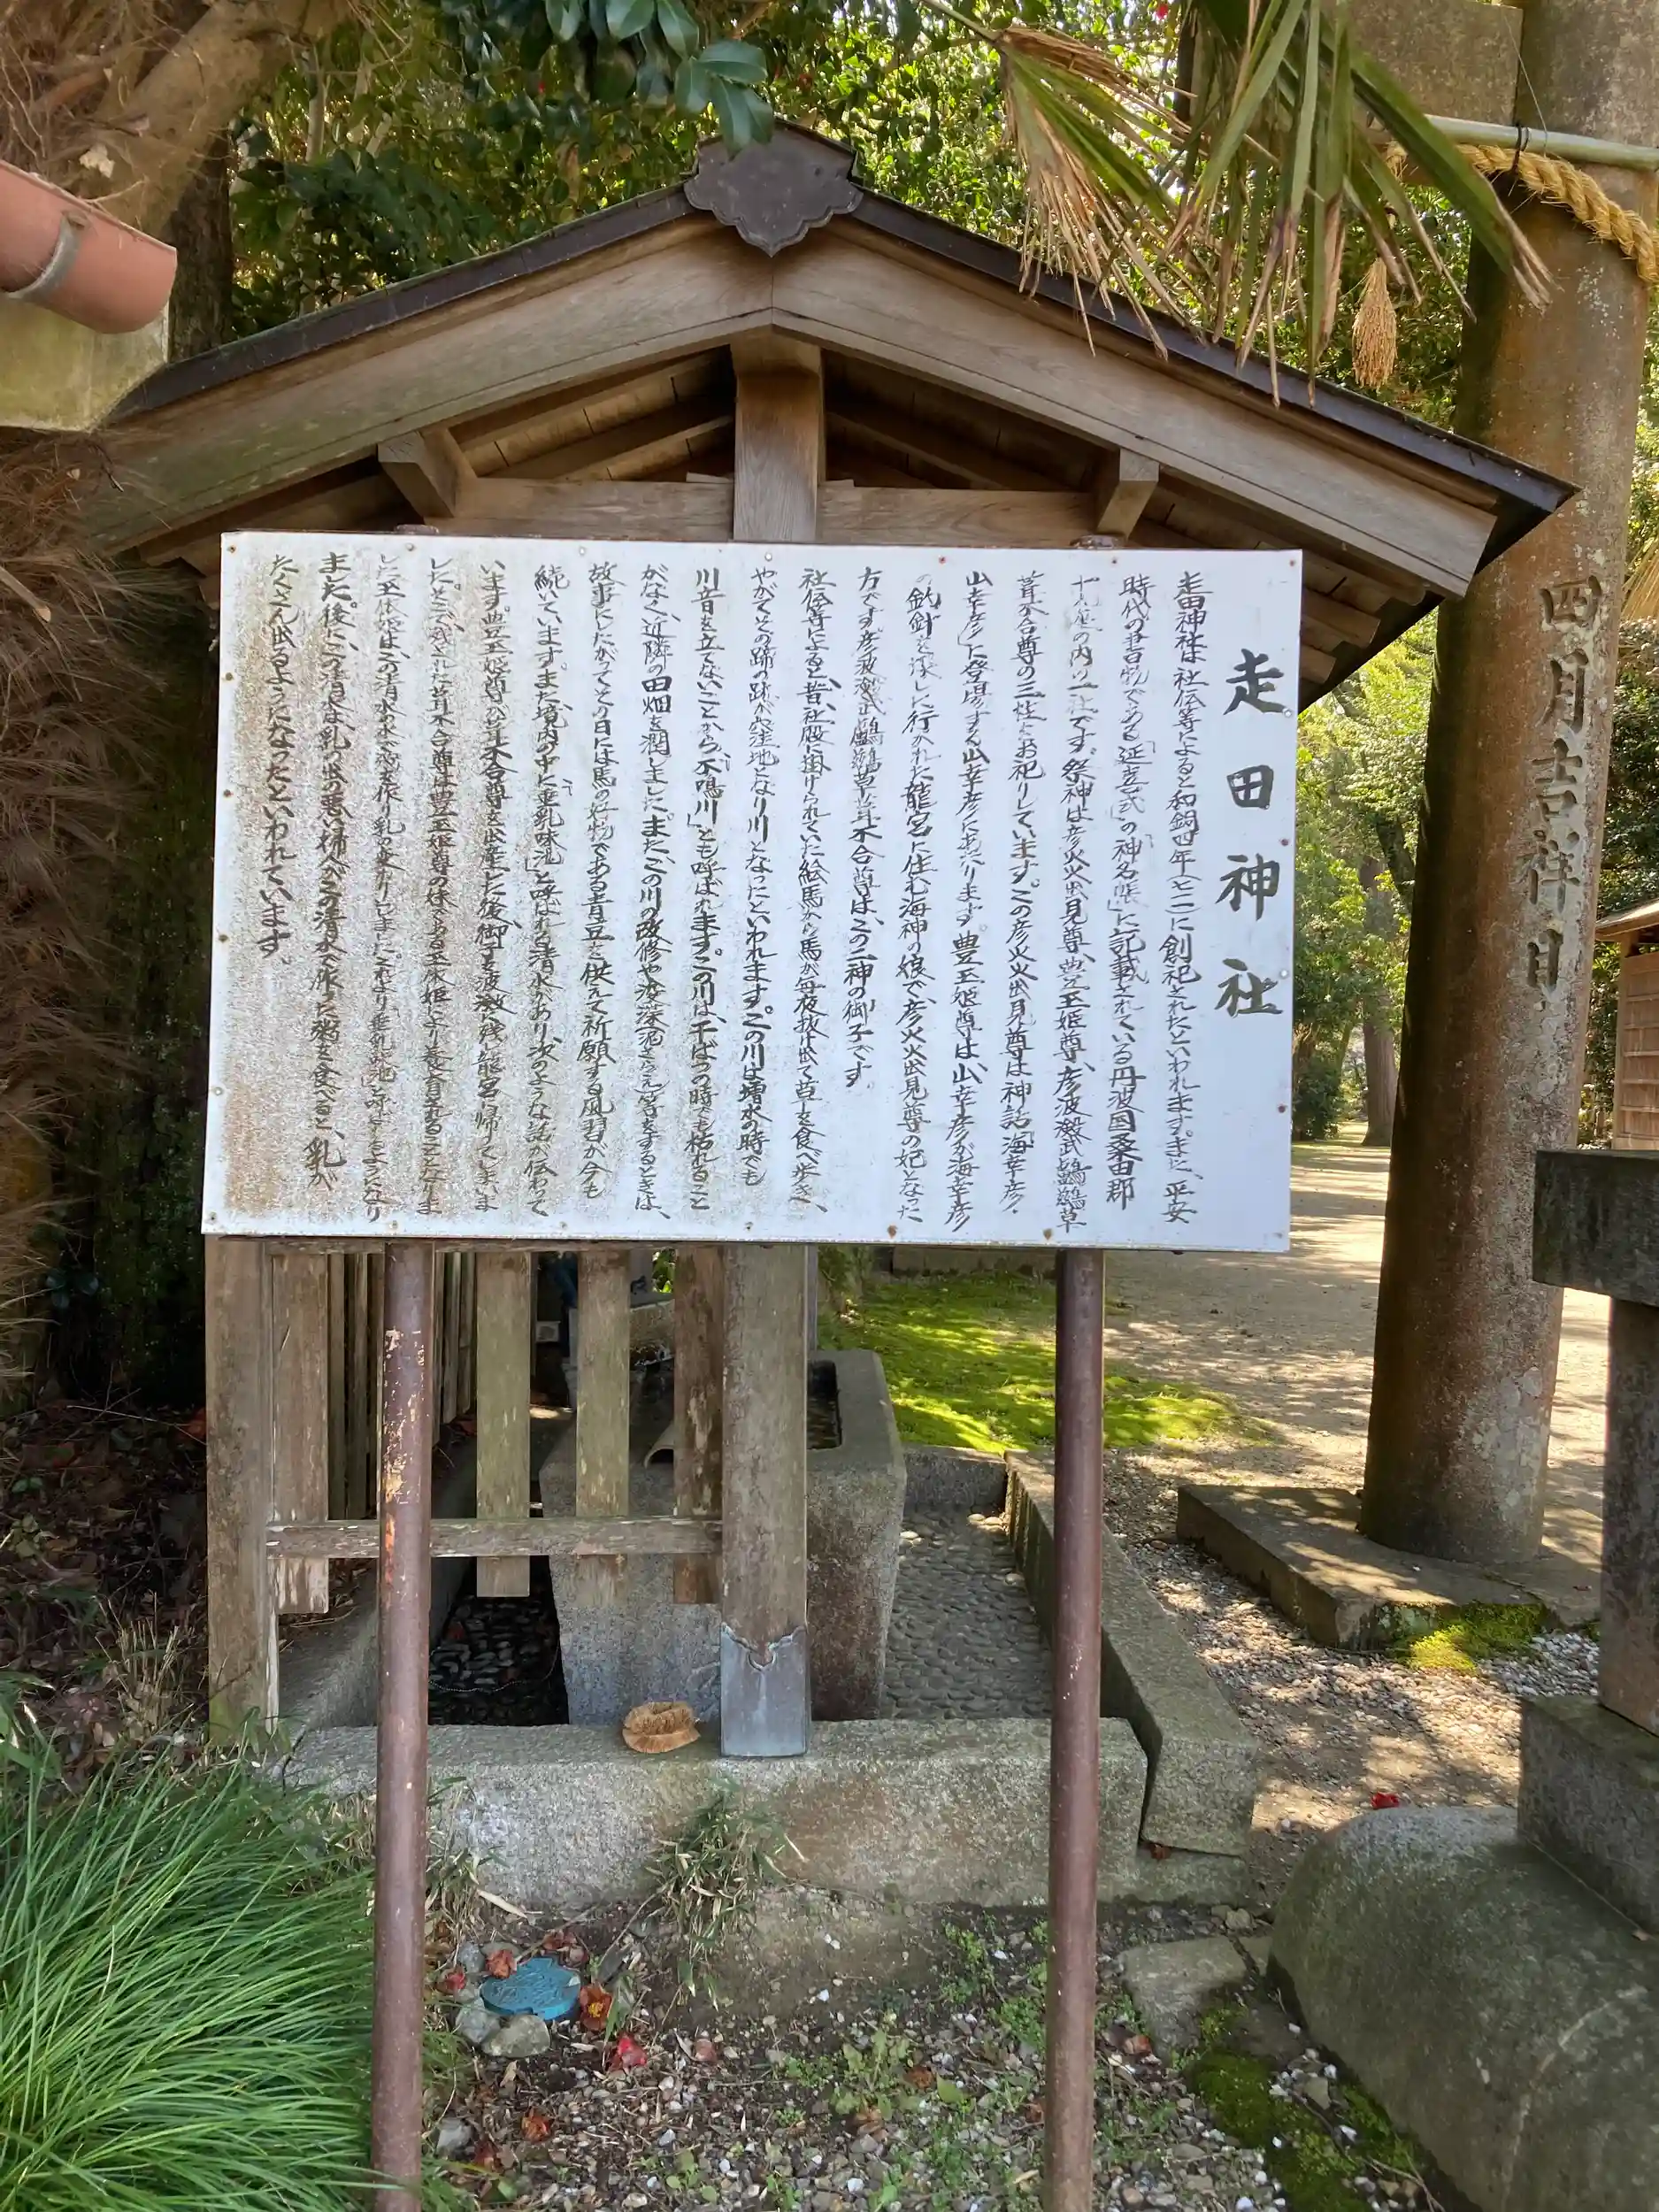 走田神社
走田神社は社伝等によると和銅四年(七一一)に創祀されたといわれます。また、平安
時代の書物である「延喜式」の「神名帳」に記載されている丹波国桑田郡
十九座の内の一社です。祭神は彦火火出見尊、豊玉姫尊、彦波瀲武鸕鷀草
葺不合尊の三柱をお祀りしています。この彦火火出見尊は神話「海幸彦・
山幸彦」に登場する山幸彦にあたります。豊玉姫尊は、山幸彦が海幸彦
の釣針を探しに行かれた龍宮に住む海神の娘で、彦火火出見尊の妃となった
方です。彦波瀲武鸕鷀草葺不合尊は、この二神の御子です。
社伝等によると、昔、社殿に掛けられていた絵馬から馬が毎夜抜け出て苗を食べ歩き、
やがてその蹄の跡が窪地となり川となったといわれます。この川は増水の時でも
川音を立てないことから、「不鳴川」とも呼ばれます。この川は、干ばつの時でも枯れること
がなく、近隣の田畑を潤しました。また、この川の改修や浚渫等をするときは、
故事にしたがってとり日には馬の好物である青豆を供えて祈願する風習が今も
続いています。また境内の中に「垂乳味池」と呼ばれる清水があり、次のような話が伝わって
います。豊玉姫尊が葺不合尊を出産した後、御子を波激に残し龍宮へ帰ってしまいま
した。そこで残された葺不合尊は豊玉姫尊の妹である玉依姫により養育されることになりま
した。玉依姫は、この清水の水で粥を作り乳の変わりにしました。これより「垂乳味池」と呼ばれるようになり
また、後に、この清水は乳の出の悪い婦人がこの清水で作った粥を食べると、乳が
たくさん出るようになったといわれています。
四月吉祥日